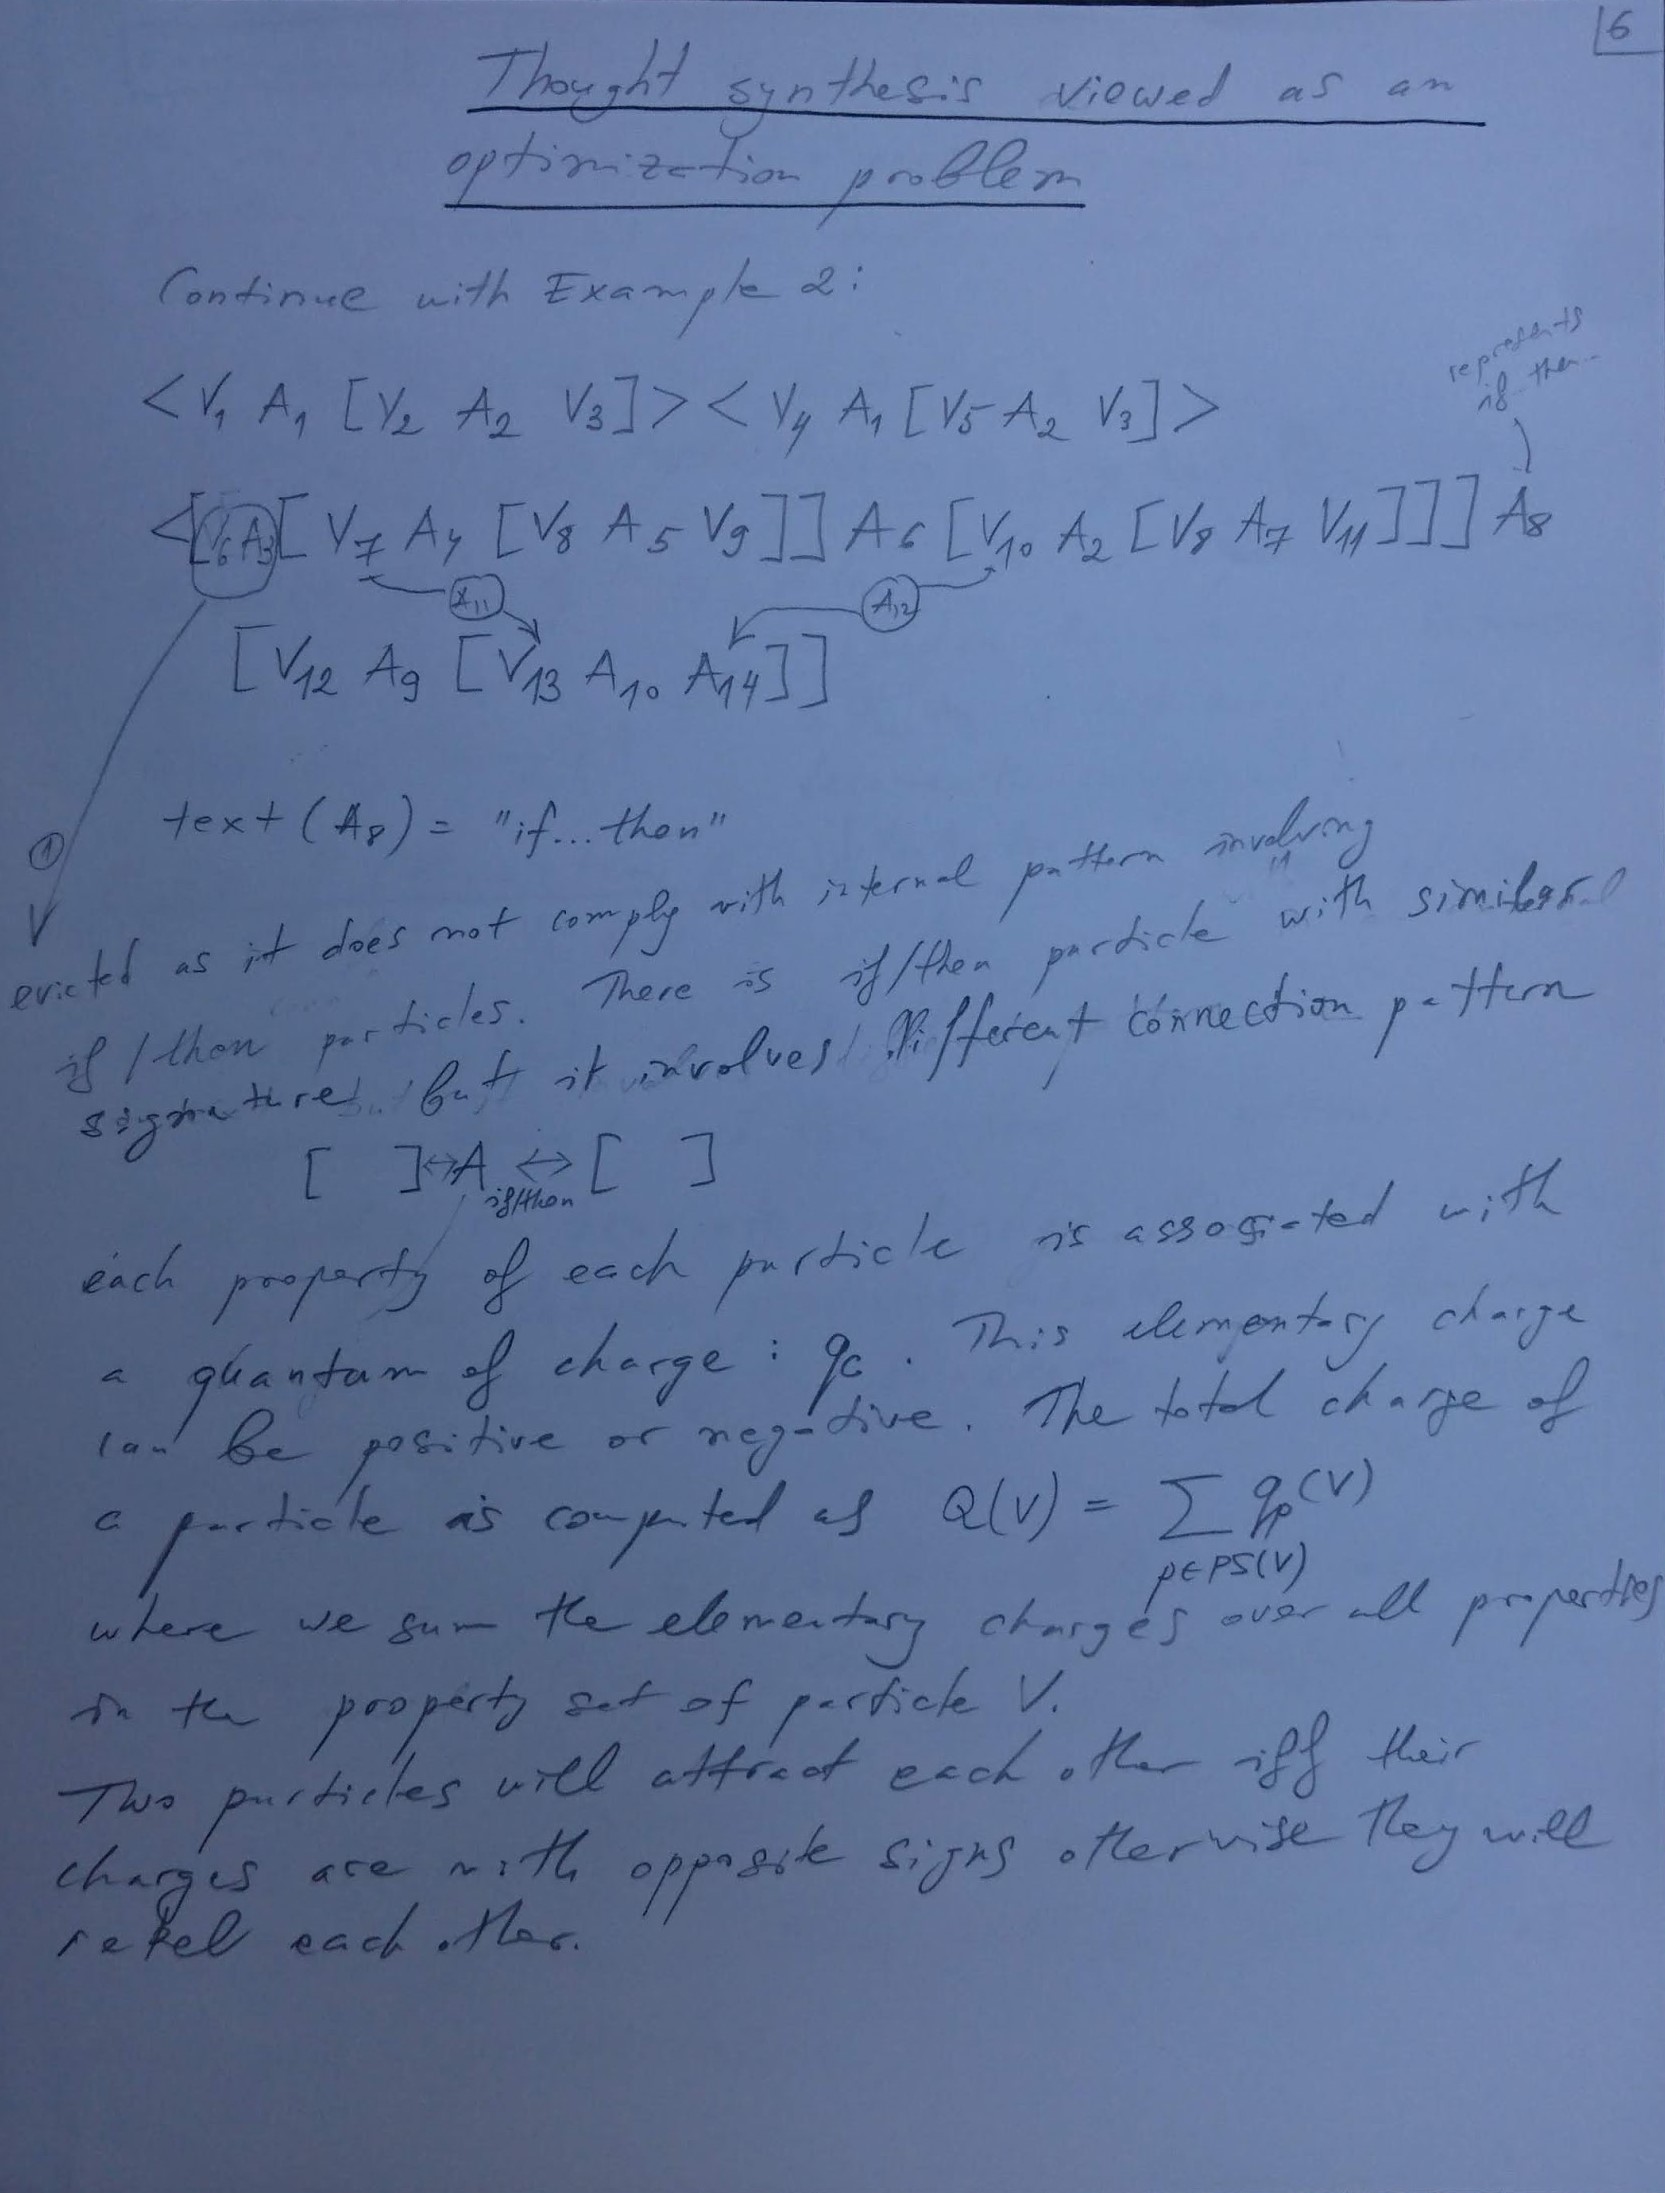 6
Thought synthesis viewed as an
optimization problem
Continue with Example 2:
represents
if then...
<V1 A1 [V2 A2 V3]> <V4 A1 [V5 A2 V3]>
<[V6 A3 [V7 A4 [V8 A5 V9]] A6 [V10 A2 [V8 A7 V11]]] A8
A11 A12
[V12 A9 [V13 A10 A14]]
text (A8) = "if...then"
1
evicted as it does not comply with internal pattern involving
if/then particles. There is if/then particle with similar
signature but it involves different connection pattern
[ ]↔A if/then ↔[ ]
each property of each particle is associated with
a quantum of charge: qc. This elementary charge
can be positive or negative. The total charge of
a particle is computed as Q(V) = ∑ qp(V)
p∈PS(V)
where we sum the elementary charges over all properties
in the property set of particle V.
Two particles will attract each other iff their
charges are with opposite signs otherwise they will
repel each other.